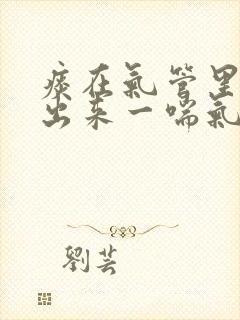 痰在氣管里
出来一喘氣
劉芸